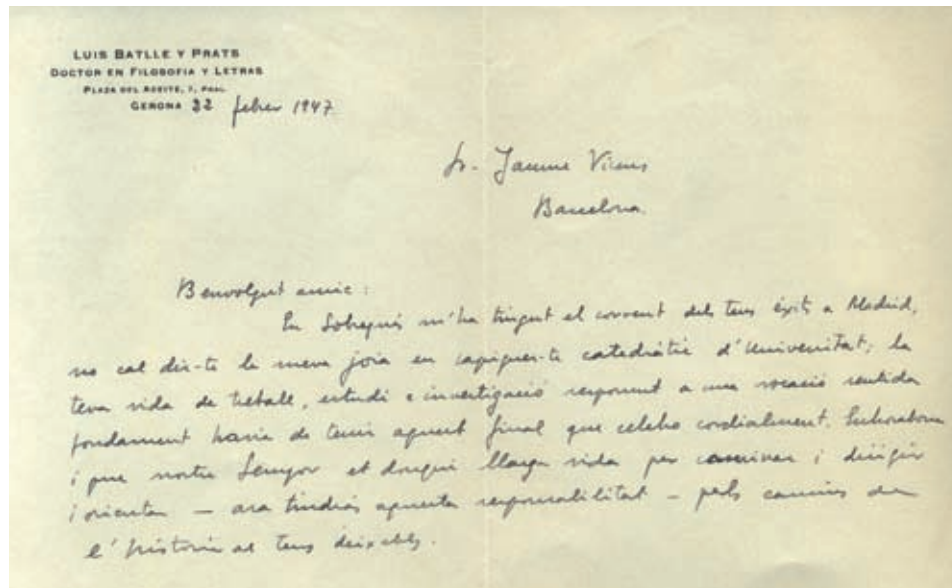 LUIS BATLLE Y PRATS
DOCTOR EN FILOSOFIA Y LETRAS
PLAZA DEL ACEITE, 1, PRAL.
GERONA 22 febrer 1947
Sr. Jaume Vicens
Barcelona.
Benvolgut amic:
En Sobrequés m'ha tingut al corrent dels teus èxits a Madrid,
no cal dir-te la meva joia en sapiguer-te catedràtic d'Universitat; la
teva vida de treball, estudi e investigació responent a una vocació sentida
fondament havia de tenir aquest final que celebro cordialment. Enhorabona
i que nostre Senyor et dongui llarga vida per caminar i dirigir
i orientar — ara tindràs aquesta responsabilitat — pels camins de
l'història als teus deixebles.